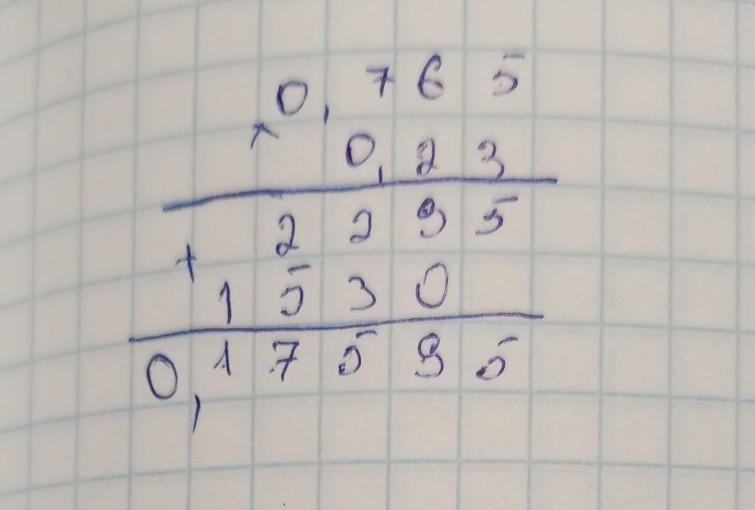 0,765
× 0,23
2295
+ 1530
0,17595